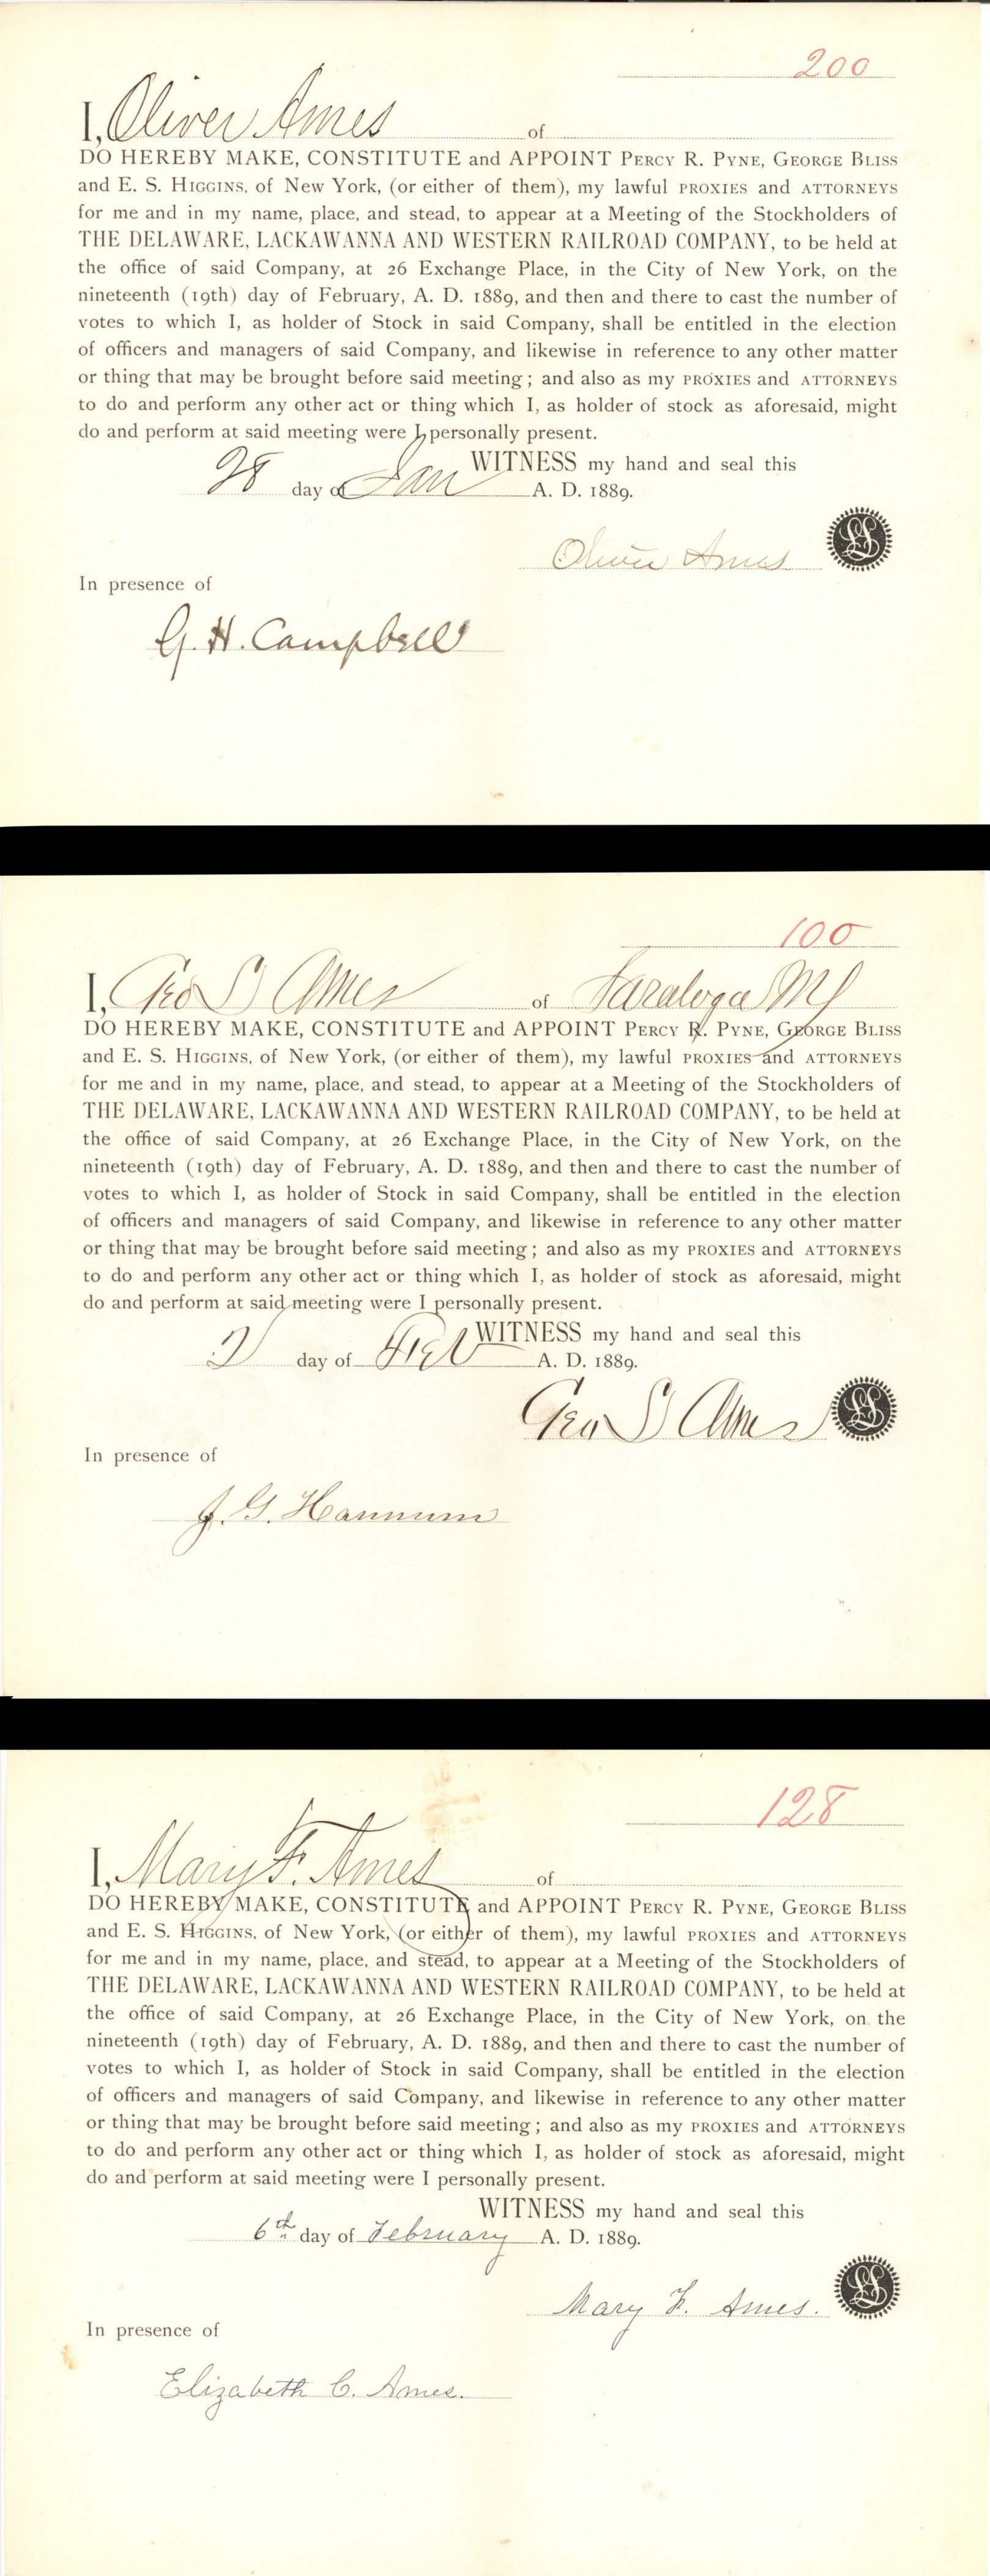 200
I, Oliver Ames of
DO HEREBY MAKE, CONSTITUTE and APPOINT PERCY R. PYNE, GEORGE BLISS
and E. S. HIGGINS, of New York, (or either of them), my lawful PROXIES and ATTORNEYS
for me and in my name, place, and stead, to appear at a Meeting of the Stockholders of
THE DELAWARE, LACKAWANNA AND WESTERN RAILROAD COMPANY, to be held at
the office of said Company, at 26 Exchange Place, in the City of New York, on the
nineteenth (19th) day of February, A. D. 1889, and then and there to cast the number of
votes to which I, as holder of Stock in said Company, shall be entitled in the election
of officers and managers of said Company, and likewise in reference to any other matter
or thing that may be brought before said meeting; and also as my PROXIES and ATTORNEYS
to do and perform any other act or thing which I, as holder of stock as aforesaid, might
do and perform at said meeting were I personally present.
WITNESS my hand and seal this
28 day of Jan A. D. 1889.
Oliver Ames LS
In presence of
G. H. Campbell
100
I, Geo S Ames of Saratoga NY
DO HEREBY MAKE, CONSTITUTE and APPOINT PERCY R. PYNE, GEORGE BLISS
and E. S. HIGGINS, of New York, (or either of them), my lawful PROXIES and ATTORNEYS
for me and in my name, place, and stead, to appear at a Meeting of the Stockholders of
THE DELAWARE, LACKAWANNA AND WESTERN RAILROAD COMPANY, to be held at
the office of said Company, at 26 Exchange Place, in the City of New York, on the
nineteenth (19th) day of February, A. D. 1889, and then and there to cast the number of
votes to which I, as holder of Stock in said Company, shall be entitled in the election
of officers and managers of said Company, and likewise in reference to any other matter
or thing that may be brought before said meeting; and also as my PROXIES and ATTORNEYS
to do and perform any other act or thing which I, as holder of stock as aforesaid, might
do and perform at said meeting were I personally present.
WITNESS my hand and seal this
2 day of Feb A. D. 1889.
Geo S Ames LS
In presence of
J. G. Hannum
128
I, Mary F. Ames of
DO HEREBY MAKE, CONSTITUTE and APPOINT PERCY R. PYNE, GEORGE BLISS
and E. S. HIGGINS, of New York, (or either of them), my lawful PROXIES and ATTORNEYS
for me and in my name, place, and stead, to appear at a Meeting of the Stockholders of
THE DELAWARE, LACKAWANNA AND WESTERN RAILROAD COMPANY, to be held at
the office of said Company, at 26 Exchange Place, in the City of New York, on the
nineteenth (19th) day of February, A. D. 1889, and then and there to cast the number of
votes to which I, as holder of Stock in said Company, shall be entitled in the election
of officers and managers of said Company, and likewise in reference to any other matter
or thing that may be brought before said meeting; and also as my PROXIES and ATTORNEYS
to do and perform any other act or thing which I, as holder of stock as aforesaid, might
do and perform at said meeting were I personally present.
WITNESS my hand and seal this
6th day of February A. D. 1889.
Mary F. Ames. LS
In presence of
Elizabeth C. Ames.